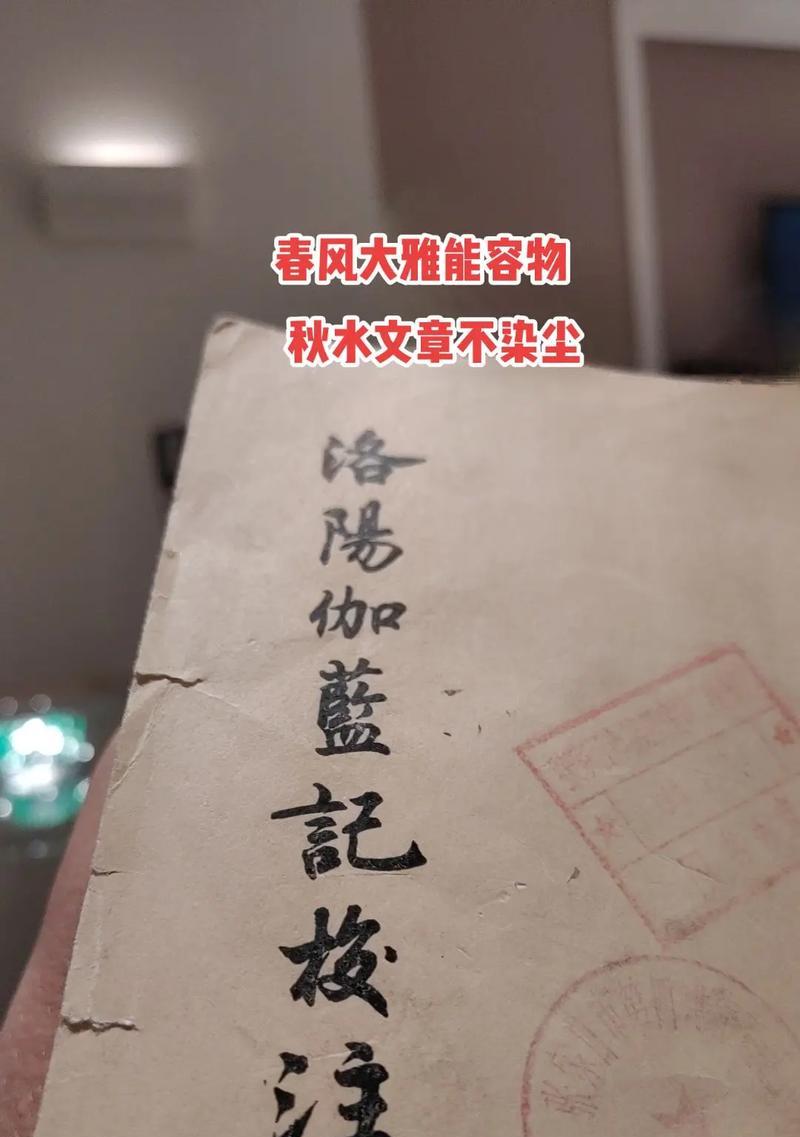 春风大雅能容物
秋水文章不染尘
洛陽伽藍記校注